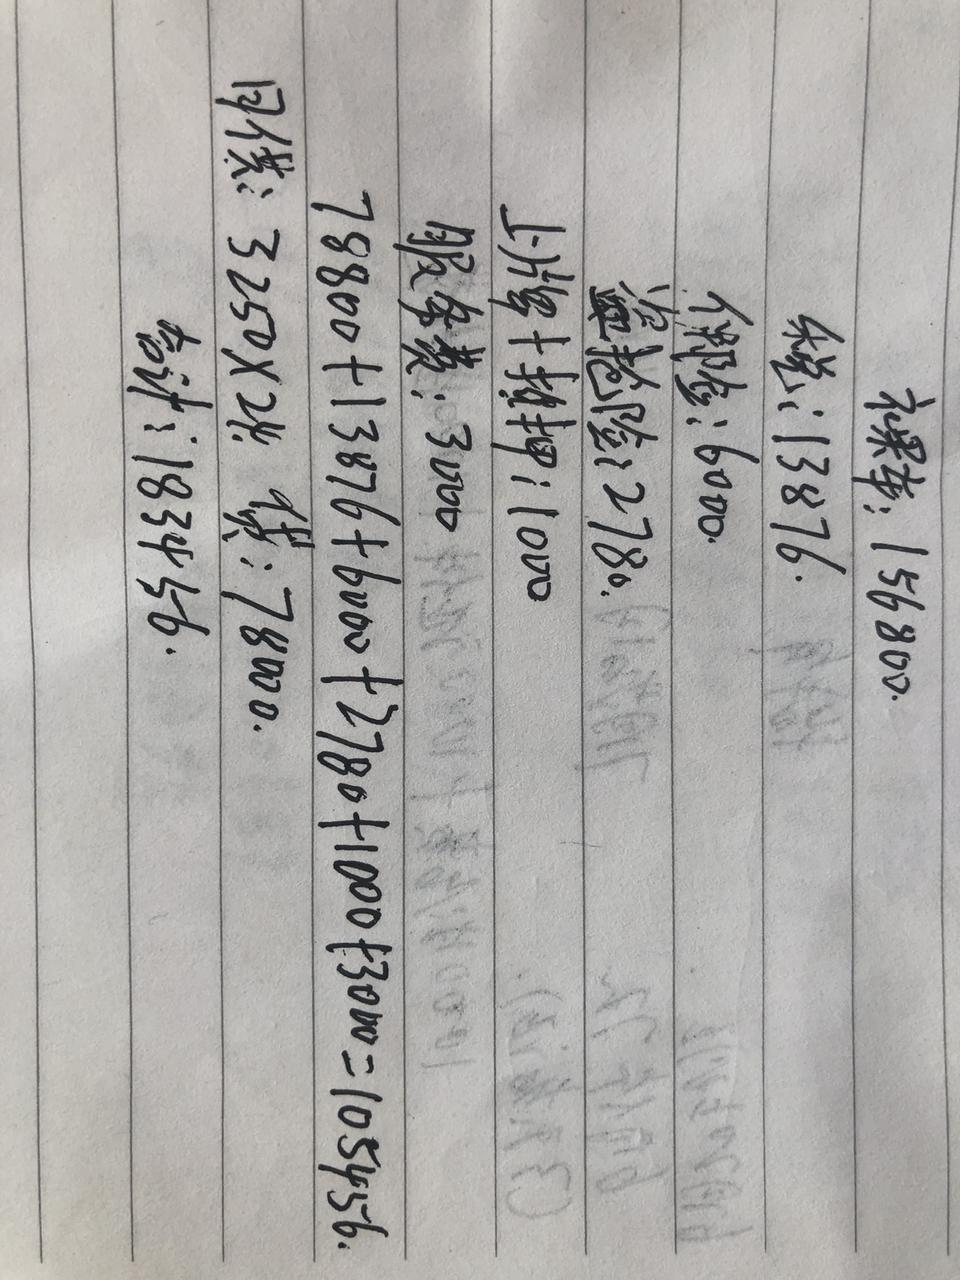 裸车: 156800.
税: 13876.
保险: 6000.
盗抢险: 2780.
上牌+抵押: 1000
服务费: 3000
78800+13876+6000+2780+1000+3000=105456.
月供: 3250X24 贷: 78000.
总计: 183456.